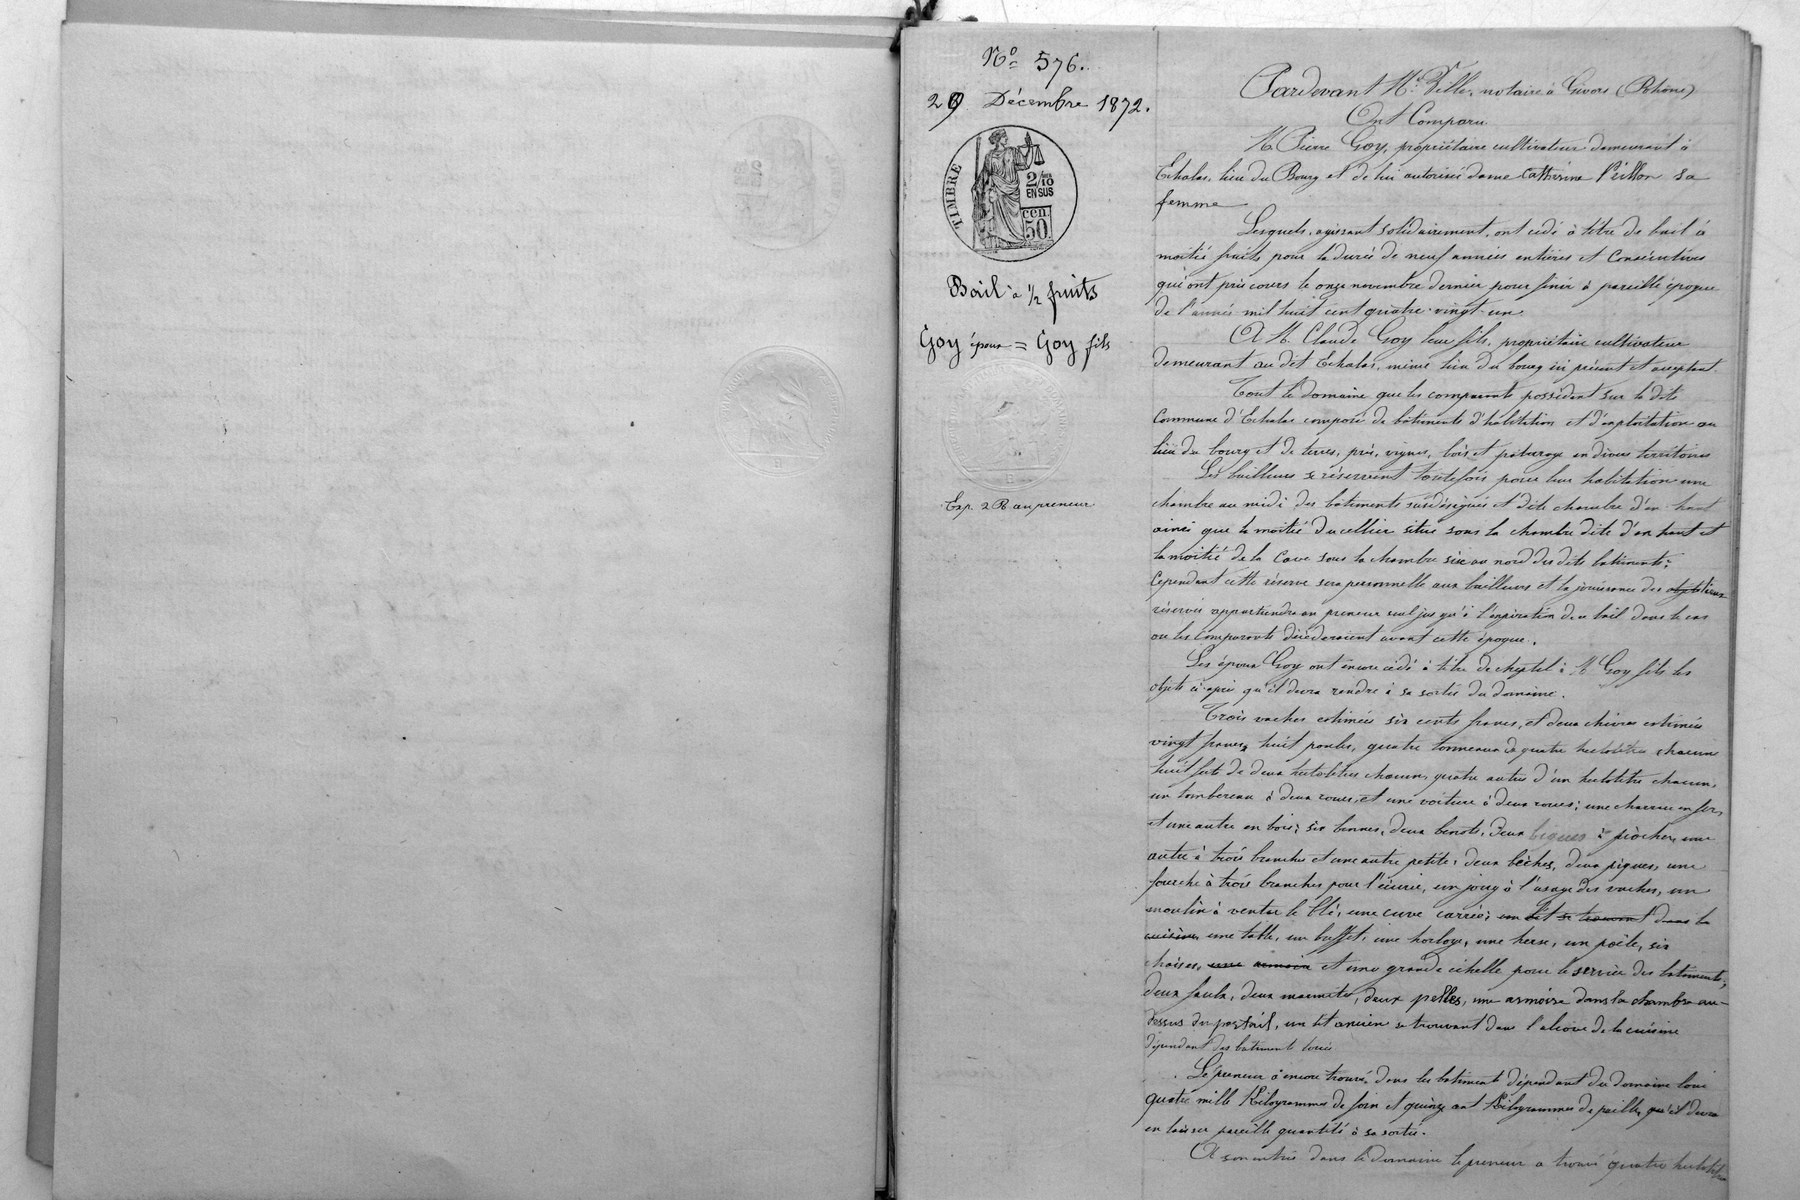 N° 576.
29 Décembre 1872.
TIMBRE
2/10
EN SUS
cen.
50
Bail à 1/2 fruits
Goy époux = Goy fils
Exp. 2 R au preneur
Pardevant Me Ville, notaire à Givors (Rhône)
Ont Comparu
M. Pierre Goy, propriétaire cultivateur demeurant à
Echalas, lieu du Bourg et de lui autorisée dame Catherine sa
femme
Lesquels, agissant solidairement, ont cédé à titre de bail à
moitié fruits pour la durée de neuf années entières et consécutives
qui ont pris cours le onze novembre dernier pour finir à pareille époque
de l'année mil huit cent quatre-vingt-un
A M. Claude Goy leur fils, propriétaire cultivateur
demeurant au dit Echalas, même lieu du bourg ici présent et acceptant
Tout le domaine que les comparants possèdent sur la dite
Commune d'Echalas composé de bâtiments d'habitation et d'exploitation au
lieu du bourg et de terres, prés, vignes, bois et pâturage en divers territoires
Les bailleurs se réservent toutefois pour leur habitation une
chambre au midi des bâtiments susdésignés et dite chambre d'en haut
ainsi que la moitié du cellier situé sous la chambre dite d'en haut et
la moitié de la cave sous la chambre sise au nord des dits bâtiments;
Cependant cette réserve sera personnelle aux bailleurs et la jouissance des
réservés appartiendra au preneur seul jusqu'à l'expiration du bail dans le cas
ou les comparants décéderaient avant cette époque.
Les époux Goy ont encore cédé à titre de cheptel à M. Goy fils les
objets ci-après qu'il devra rendre à sa sortie du domaine.
Trois vaches estimées six cents francs, et deux chèvres estimées
vingt francs, huit poules, quatre tonneaux de quatre hectolitres chacun
huit fûts de deux hectolitres chacun, quatre autres d'un hectolitre chacun,
un tombereau à deux roues, et une voiture à deux roues; une charrue en fer,
et une autre en bois; six bennes, deux benots, deux bigues à piocher, une
autre à trois branches et une autre petite; deux bêches, deux piques, une
fourche à trois branches pour l'écurie, un joug à l'usage des vaches, un
moulin à venter le blé, une cuve carrée; un lit se trouvant dans la
cuisine, une table, un buffet, une horloge, une herse, un poêle, six
chaises, une armoire et une grande échelle pour le service des bâtiments;
deux faulx, deux marmites, deux pelles, une armoire dans la chambre au-
dessus du portail, un lit ancien se trouvant dans l'alcove de la cuisine
dépendant des bâtiments loués
Le preneur a encore trouvé dans les bâtiments dépendant du domaine loué
quatre mille Kilogrammes de foin et quinze cent Kilogrammes de paille, qu'il devra
en laisser pareille quantité à sa sortie.
A son entrée dans le domaine le preneur a trouvé quatre hectolitres